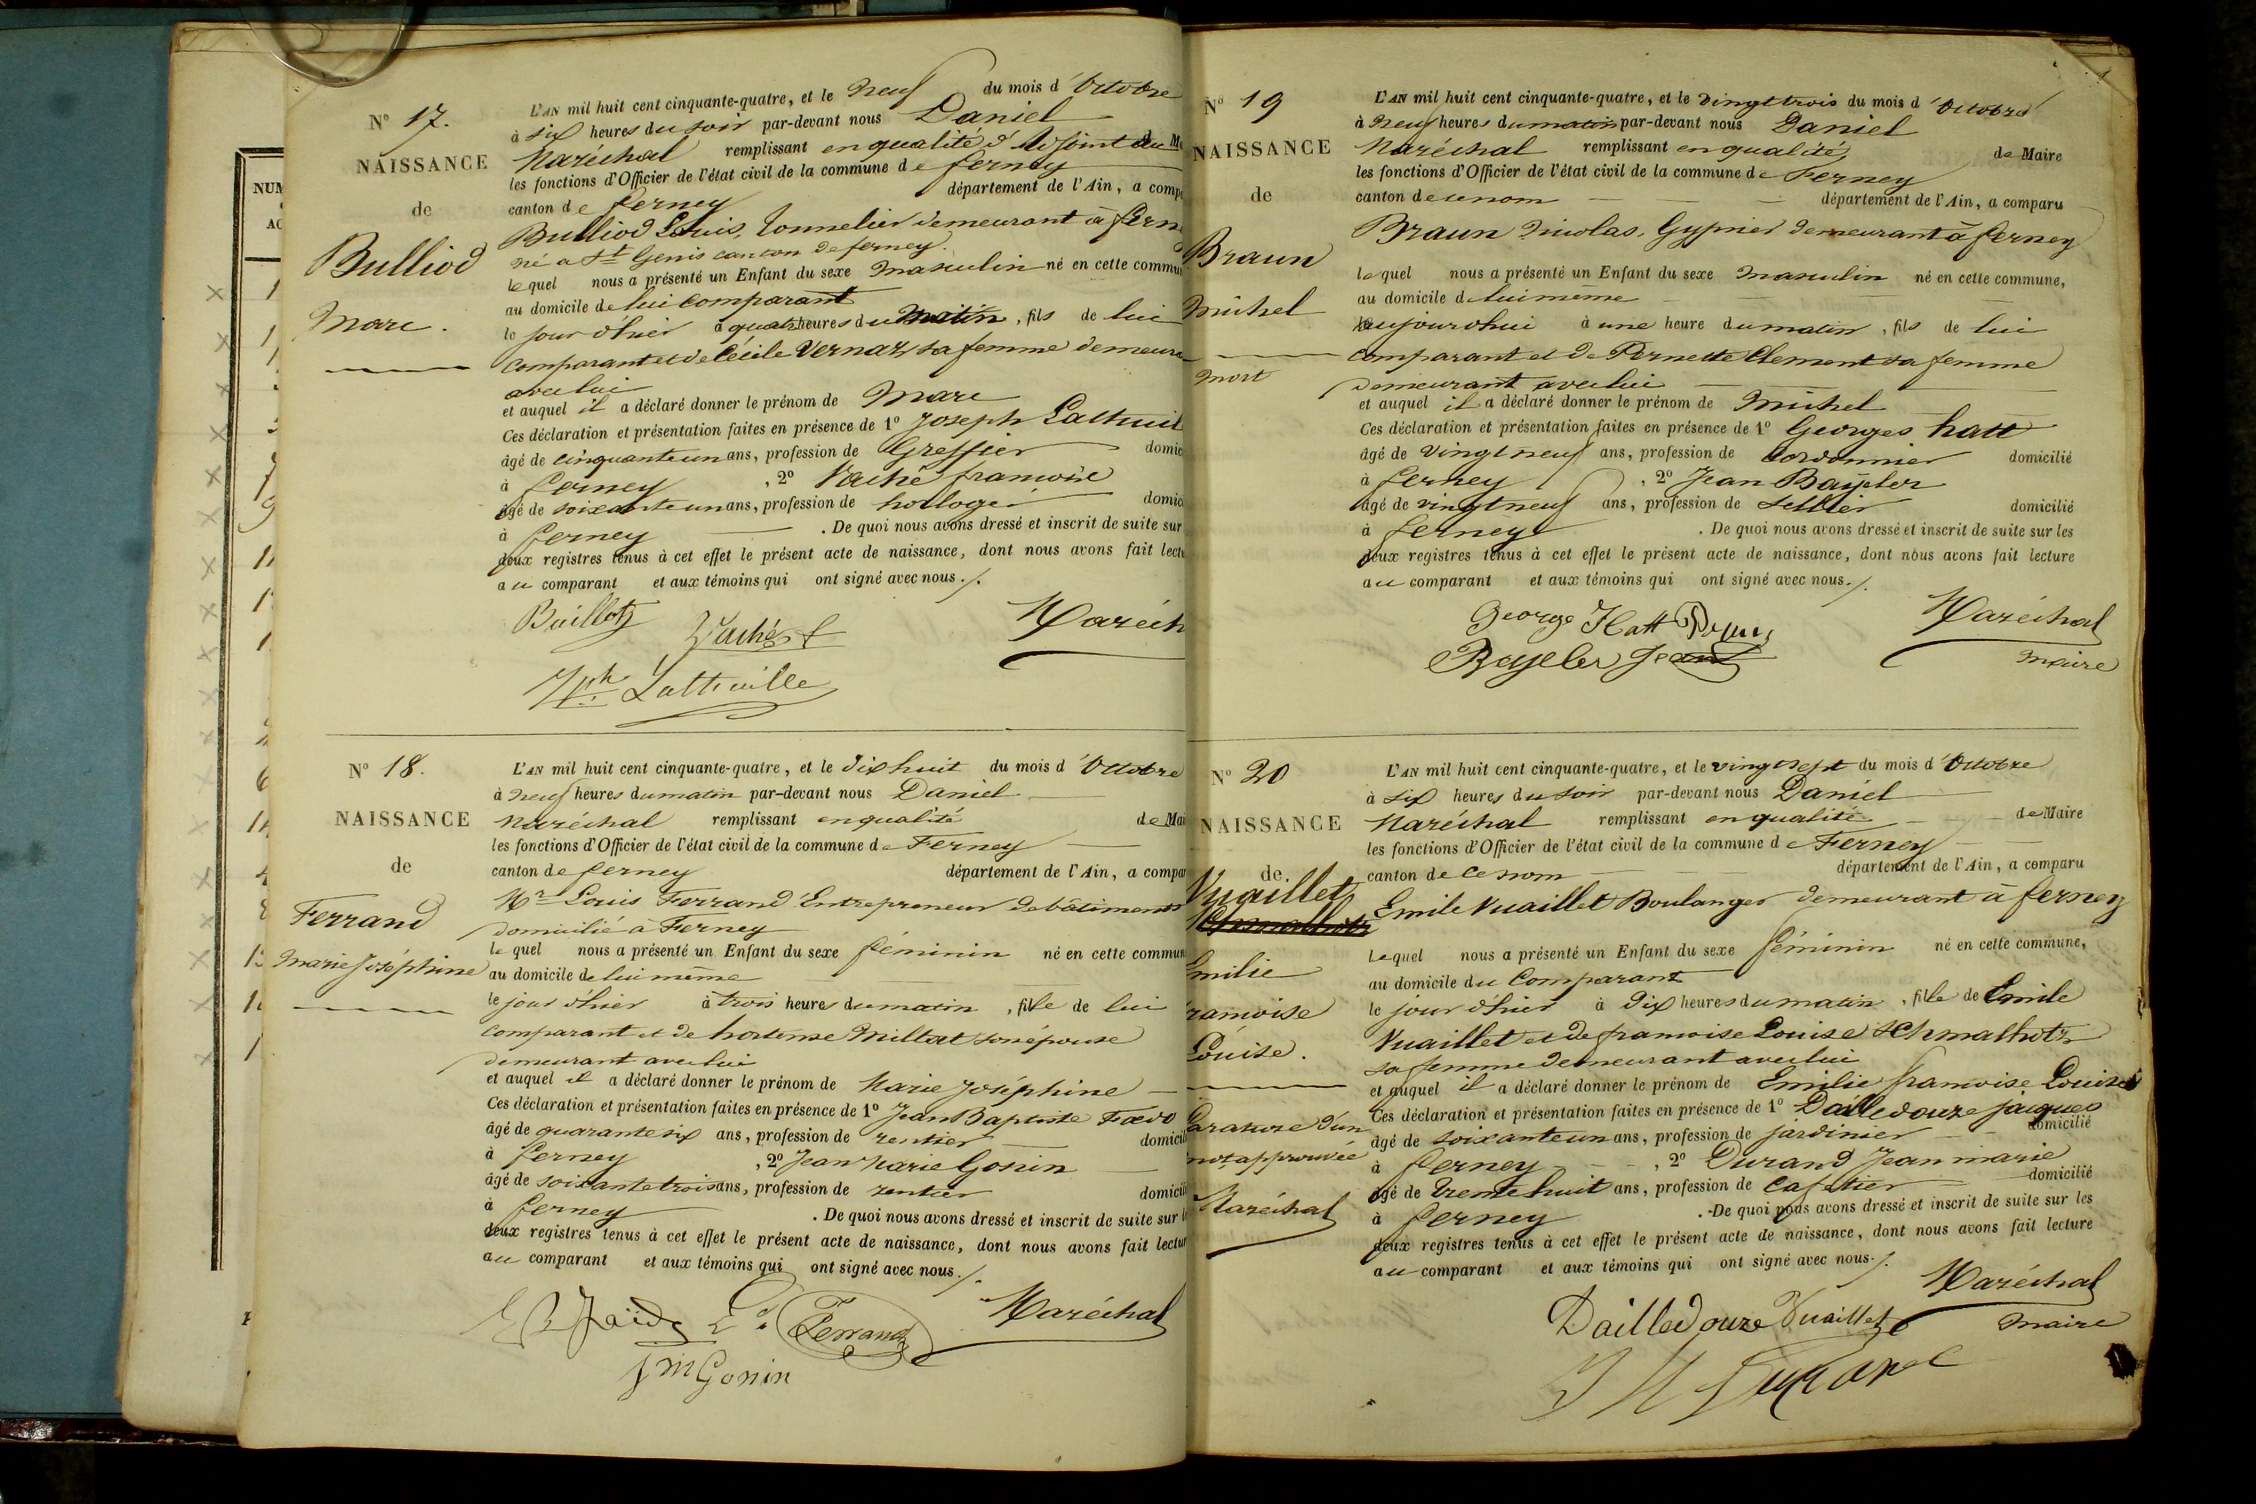 NUM
AC
Nº 17.
NAISSANCE
de
Bulliod
Marc.
L'AN mil huit cent cinquante-quatre, et le neuf du mois d'Octobre
à six heures du soir par-devant nous Daniel
Maréchal remplissant en qualité d'Adjoint
les fonctions d'Officier de l'état civil de la commune de ferney
canton de ferney département de l'Ain, a comp
Bulliod Louis, tonnelier demeurant à fern
né a St Genis canton de ferney.
lequel nous a présenté un Enfant du sexe masculin né en cette commu
au domicile de lui comparant
le jour d'hier à quatre heures du matin, fils de lui
comparant et de Cécile Vernaz sa femme demeura
avec lui
et auquel il a déclaré donner le prénom de Marc
Ces déclaration et présentation faites en présence de 1º Joseph Lathuil
âgé de cinquante un ans, profession de Greffier domic
à ferney, 2º Vaché francoise
âgé de soixante un ans, profession de horloger domic
à ferney. De quoi nous avons dressé et inscrit de suite sur
deux registres tenus à cet effet le présent acte de naissance, dont nous avons fait lectu
au comparant et aux témoins qui ont signé avec nous./.
Vaché Maréch
Jph Lathuille
Nº 18.
NAISSANCE
de
Ferrand
Marie Joséphine
L'AN mil huit cent cinquante-quatre, et le dix huit du mois d'Octobre
à neuf heures du matin par-devant nous Daniel
Maréchal remplissant en qualité de Mai
les fonctions d'Officier de l'état civil de la commune de Ferney
canton de ferney département de l'Ain, a compar
Mr Louis Ferrand Entrepreneur de bâtiments
domicilié à Ferney
lequel nous a présenté un Enfant du sexe féminin né en cette commun
au domicile de lui même
le jour d'hier à trois heures du matin, fille de lui
comparant et de hortense Millat son épouse
demeurant avec lui
et auquel il a déclaré donner le prénom de Marie Joséphine
Ces déclaration et présentation faites en présence de 1º Jean Baptiste
âgé de quarante six ans, profession de rentier domicil
à ferney, 2º Jean Marie Gonin
âgé de soixante trois ans, profession de rentier domicil
à ferney. De quoi nous avons dressé et inscrit de suite sur l
deux registres tenus à cet effet le présent acte de naissance, dont nous avons fait lectur
au comparant et aux témoins qui ont signé avec nous./.
Ls Ferrand Maréchal
JM Gonin
Nº 19
NAISSANCE
de
Braun
Michel
mort
L'AN mil huit cent cinquante-quatre, et le vingt trois du mois d'Octobre
à neuf heures du matin par-devant nous Daniel
Maréchal remplissant en qualité de Maire
les fonctions d'Officier de l'état civil de la commune de Ferney
canton de ce nom département de l'Ain, a comparu
Braun Nicolas, Gypsier demeurant à ferney
lequel nous a présenté un Enfant du sexe masculin né en cette commune,
au domicile de lui même
aujourdhui à une heure du matin, fils de lui
comparant et de Pernette Clement sa femme
demeurant avec lui
et auquel il a déclaré donner le prénom de Michel
Ces déclaration et présentation faites en présence de 1º Georges hatt
âgé de vingt neuf ans, profession de Cordonnier domicilié
à ferney, 2º Jean Baÿeler
âgé de vingt neuf ans, profession de Sellier domicilié
à ferney. De quoi nous avons dressé et inscrit de suite sur les
deux registres tenus à cet effet le présent acte de naissance, dont nous avons fait lecture
au comparant et aux témoins qui ont signé avec nous./.
George Hatt Maréchal
Bayeler Jean Maire
Nº 20
NAISSANCE
de
Vuaillet
Emilie
francoise
Louise.
Rarature d'un
mot approuvée
Maréchal
L'AN mil huit cent cinquante-quatre, et le vingt sept du mois d'Octobre
à six heures du soir par-devant nous Daniel
Maréchal remplissant en qualité de Maire
les fonctions d'Officier de l'état civil de la commune de Ferney
canton de ce nom département de l'Ain, a comparu
Emile Vuaillet Boulanger demeurant à ferney
lequel nous a présenté un Enfant du sexe féminin né en cette commune,
au domicile du Comparant
le jour d'hier à dix heures du matin, fille de Emile
Vuaillet et de francoise Louise Schmalholtz
sa femme demeurant avec lui
et auquel il a déclaré donner le prénom de Emilie francoise Louise
Ces déclaration et présentation faites en présence de 1º Dailledouze jaques
âgé de soixante un ans, profession de jardinier domicilié
à ferney, 2º Durand Jean marie
âgé de trente huit ans, profession de Cafetier domicilié
à ferney. De quoi nous avons dressé et inscrit de suite sur les
deux registres tenus à cet effet le présent acte de naissance, dont nous avons fait lecture
au comparant et aux témoins qui ont signé avec nous./.
Maréchal
Dailledouze Vuaillet Maire
JM Durand